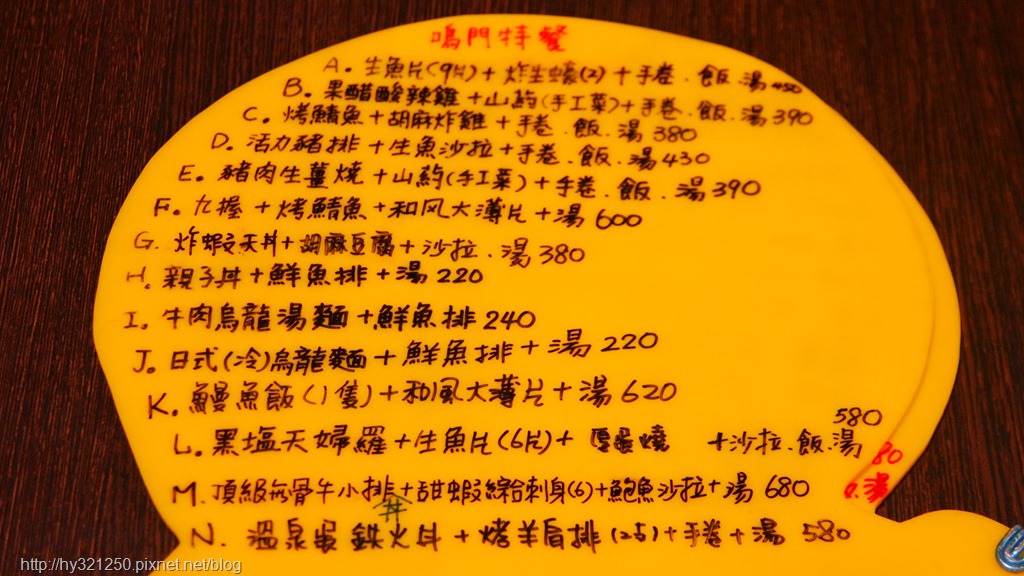 鳴門特餐
A. 生魚片(9片)+炸生蠔(2)+手卷.飯.湯 450
B. 果醋酸辣雞+山藥(手工菜)+手卷.飯.湯 390
C. 烤鯖魚+胡麻炸雞+手卷.飯.湯 380
D. 活力豬排+生魚沙拉+手卷.飯.湯 430
E. 豬肉生薑燒+山藥(手工菜)+手卷.飯.湯 390
F. 九握+烤鯖魚+和风大薄片+湯 600
G. 炸蝦天丼+胡麻豆腐+沙拉.湯 380
H. 親子丼+鮮魚排+湯 220
I. 牛肉烏龍湯麵+鮮魚排 240
J. 日式(冷)烏龍麵+鮮魚排+湯 220
K. 鰻魚飯(1隻)+和風大薄片+湯 620
580
L. 黑塩天婦羅+生魚片(6片)+厚蛋燒 +沙拉.飯.湯
80
M. 頂級無骨牛小排+甜蝦綜合刺身(6)+鮑魚沙拉+湯 680
湯
丼
N. 溫泉蛋鉄火丼+烤羊肩排(2支)+手卷+湯 580
http://hy321250.pixnet.net/blog